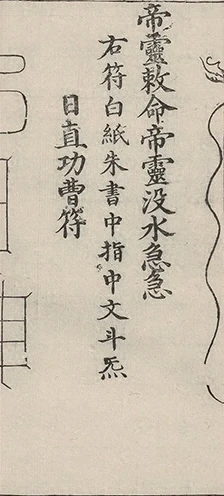 帝靈敕命帝靈没水急急
右符白紙朱書中指中文斗炁
日直功曹符